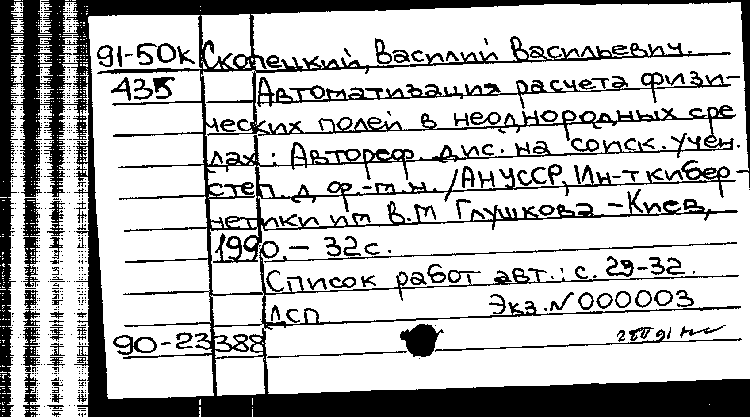 91-50к Скопецкий, Василий Васильевич.
435 Автоматизация расчета физи-
ческих полей в неоднородных сре
дах : Автореф. дис. на соиск. учен.
степ. д. ф.-м.н. /АН УССР, Ин-т кибер-
нетики им В.М Глушкова -Киев,
1990. - 32 с.
Список работ авт.: с. 29-32.
ДСП Экз. N 000003
90-23388